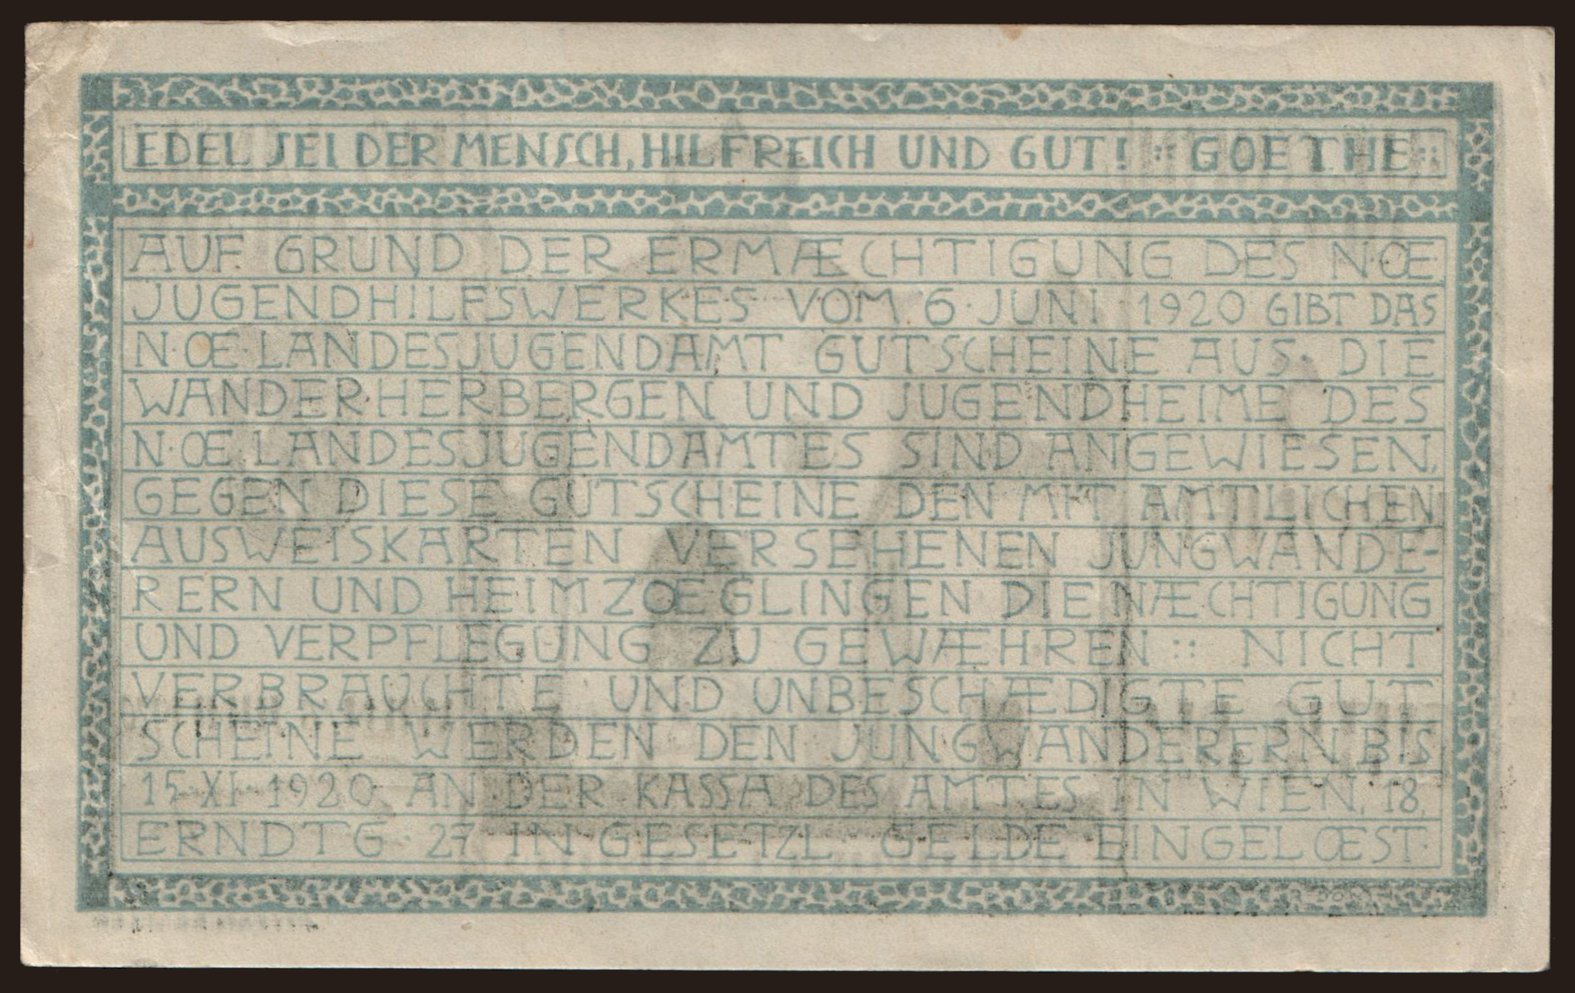 EDEL SEI DER MENSCH, HILFREICH UND GUT! :: GOETHE ::
AUF GRUND DER ERMÆCHTIGUNG DES N·Œ
JUGENDHILFSWERKES VOM 6·JUNI 1920 GIBT DAS
N·Œ·LANDESJUGENDAMT GUTSCHEINE AUS· DIE
WANDERHERBERGEN UND JUGENDHEIME DES
N·Œ LANDESJUGENDAMTES SIND ANGEWIESEN,
GEGEN DIESE GUTSCHEINE DEN MIT AMTLICHEN
AUSWEISKARTEN VERSEHENEN JUNGWANDE-
RERN UND HEIMZŒGLINGEN DIE NÆCHTIGUNG
UND VERPFLEGUNG ZU GEWÆHREN :: NICHT
VERBRAUCHTE UND UNBESCHÆDIGTE GUT
SCHEINE WERDEN DEN JUNGWANDERERN BIS
15·XI·1920 AN DER KASSA DES AMTES IN WIEN, 18,
ERNDTG· 27 IN GESETZL· GELDE EINGELŒST·